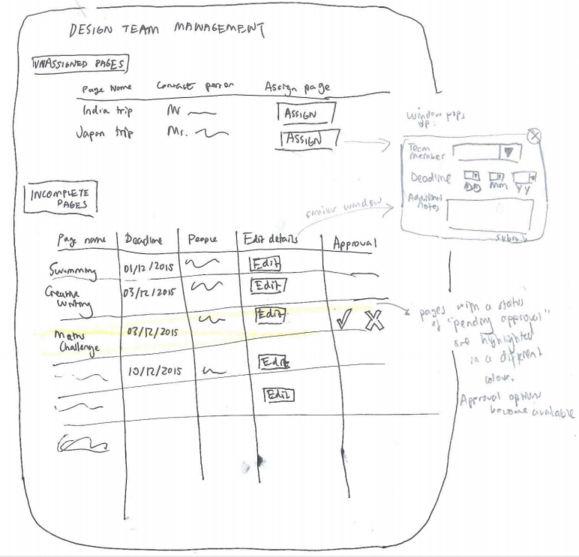 DESIGN TEAM MANAGEMENT
UNASSIGNED PAGES
Page Name Contact person Assign page
India trip Mr ASSIGN
Japan trip Ms. ASSIGN
Window pops
up:
X
Team
member
Deadline DD MM YY
Additional
notes
submit
similar window
INCOMPLETE
PAGES
Page name Deadline People Edit details Approval
Swimming 01/12/2015 Edit
Creative
Writing 03/12/2015 Edit
Maths
Challenge 03/12/2015 Edit
10/12/2015 Edit
Edit
pages with a status
of "pending approval"
are highlighted
in a different
colour.
Approval option
become available